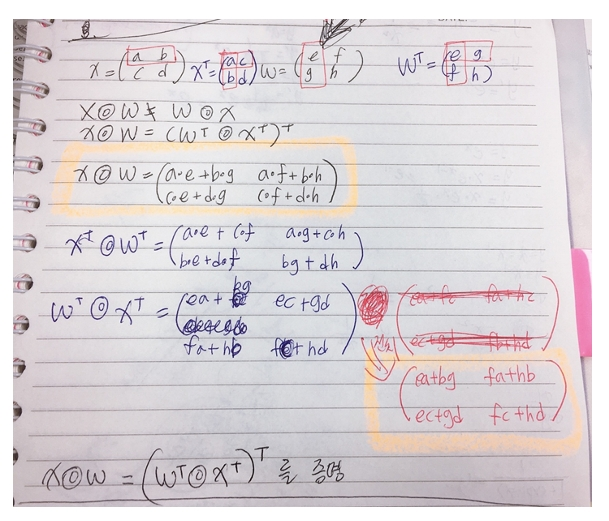 X = (a b / c d) Xᵀ = (a c / b d) W = (e f / g h) Wᵀ = (e g / f h)
X⊙W ≠ W⊙X
X⊙W = (Wᵀ⊙Xᵀ)ᵀ
X⊙W = (a∘e+b∘g a∘f+b∘h
c∘e+d∘g c∘f+d∘h)
Xᵀ⊙Wᵀ = (a∘e + c∘f a∘g+c∘h
b∘e+d∘f bg+dh)
Wᵀ⊙Xᵀ = (ea+bg ec+gd
fa+hb fc+hd)
(ea+fc fa+hc
ec+gd fb+hd)
(ea+bg fa+hb
ec+gd fc+hd)
X⊙W = (Wᵀ⊙Xᵀ)ᵀ 를 증명